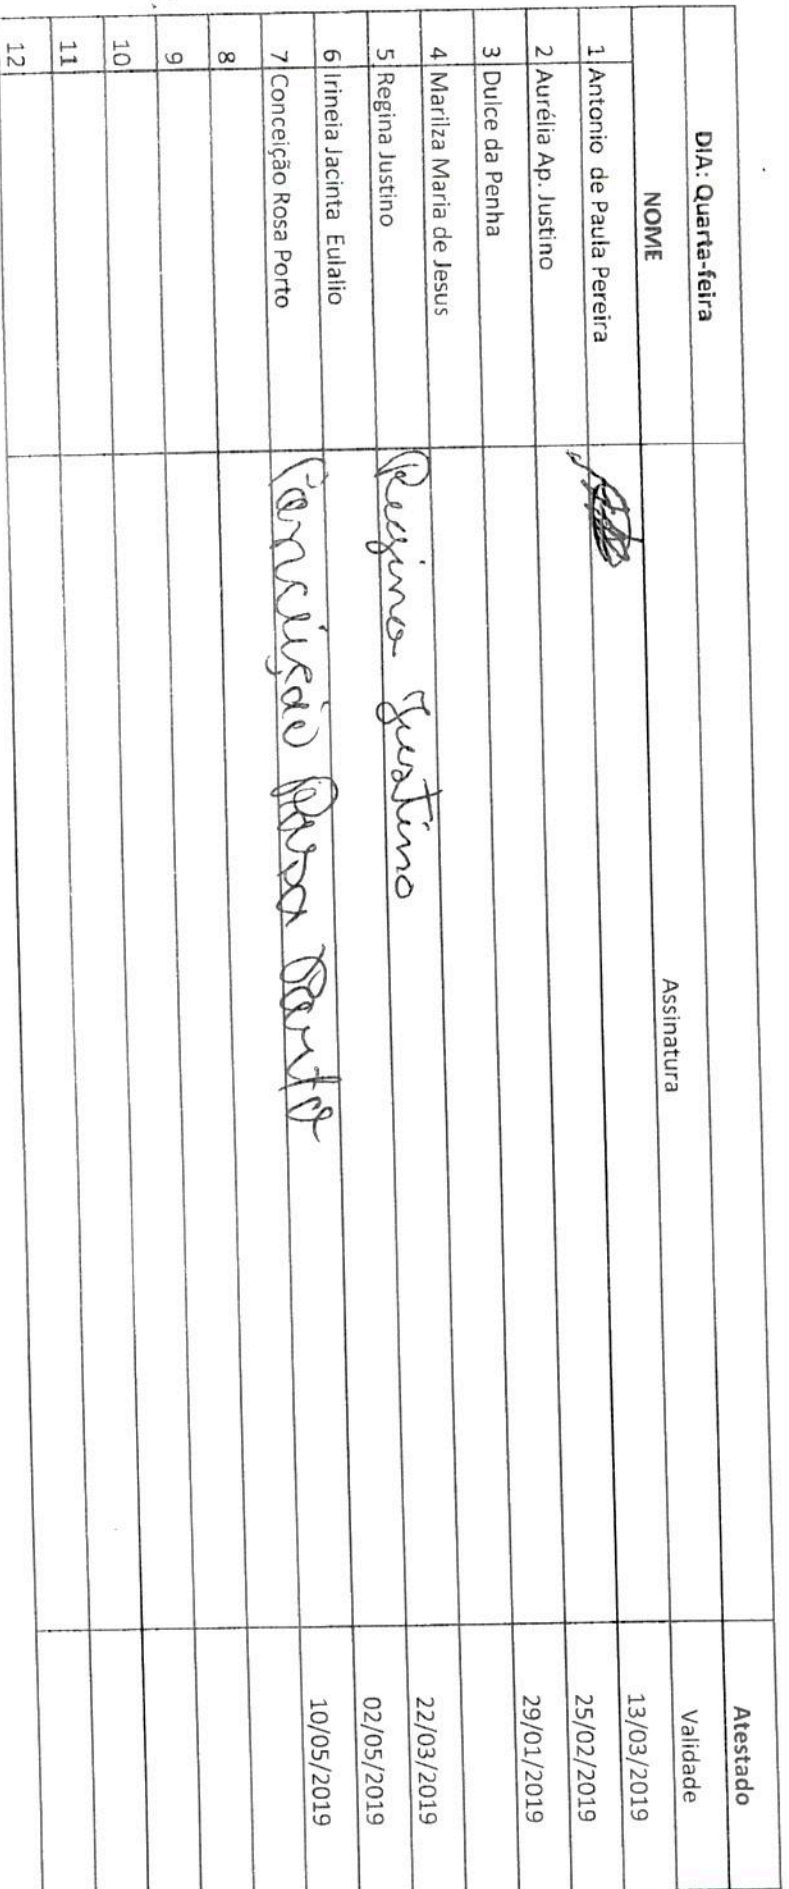 DIA: Quarta-feira Atestado
NOME Assinatura Validade
1 Antonio de Paula Pereira 13/03/2019
2 Aurélia Ap. Justino 25/02/2019
3 Dulce da Penha 29/01/2019
4 Marilza Maria de Jesus
5 Regina Justino Regina Justino 22/03/2019
6 Irineia Jacinta Eulalio 02/05/2019
7 Conceição Rosa Porto Conceição Rosa Porto 10/05/2019
8
9
10
11
12